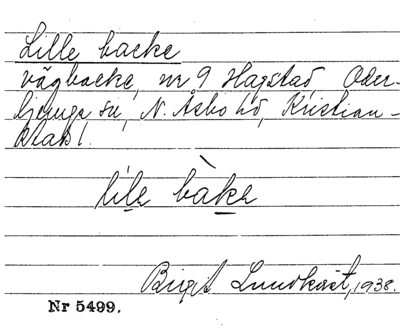 Lille backe
vägbacke, nr 9 Hagstad, Oder-
ljunga sn, N. Åsbo hd, Kristian-
stads l.
lìle bàke
Birgit Lundkvist, 1938.
Nr 5499.